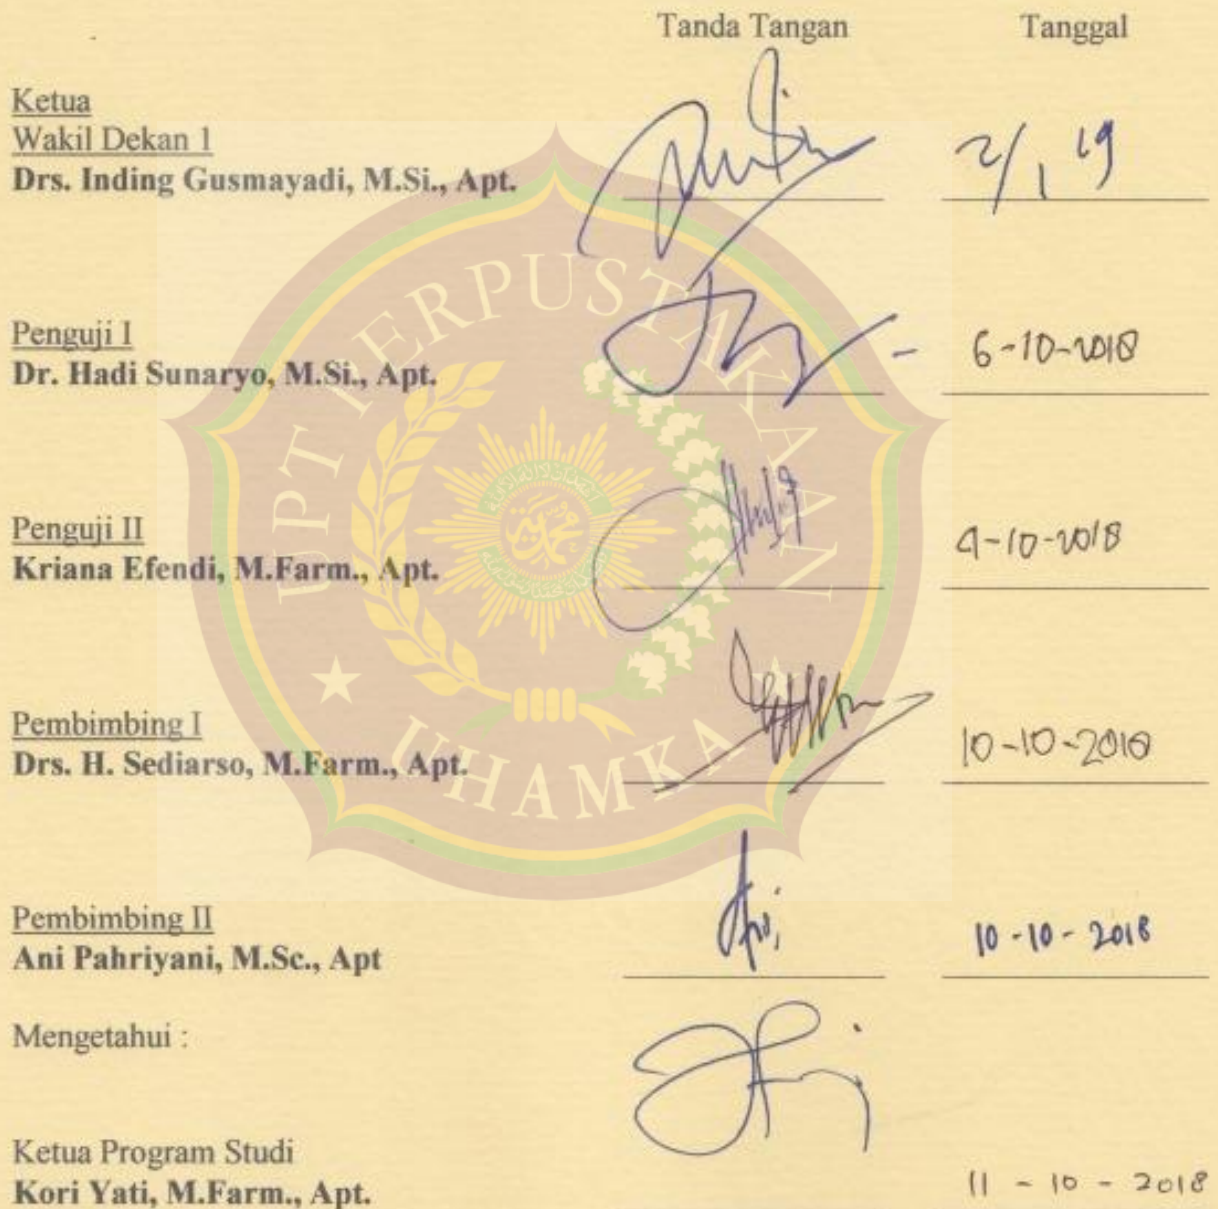 Tanda Tangan Tanggal
Ketua
Wakil Dekan 1
Drs. Inding Gusmayadi, M.Si., Apt. 2/1 19
Penguji I
Dr. Hadi Sunaryo, M.Si., Apt. 6-10-2018
Penguji II
Kriana Efendi, M.Farm., Apt. 9-10-2018
Pembimbing I
Drs. H. Sediarso, M.Farm., Apt. 10-10-2018
Pembimbing II
Ani Pahriyani, M.Sc., Apt 10-10-2018
Mengetahui :
Ketua Program Studi
Kori Yati, M.Farm., Apt. 11-10-2018
UPT PERPUSTAKAAN
UHAMKA